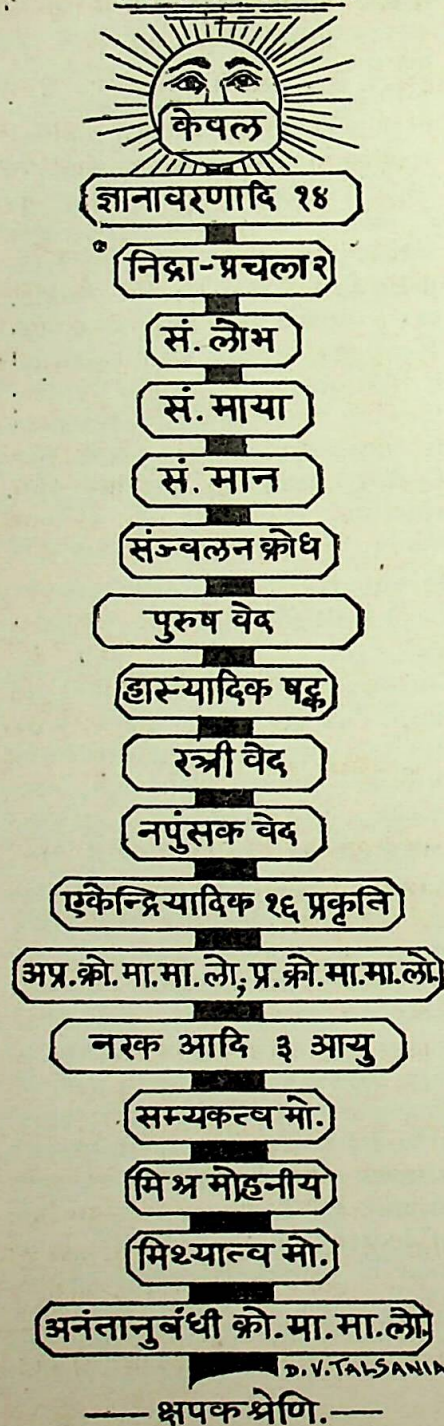 केवल
ज्ञानावरणादि १४
निद्रा-प्रचला २
सं. लोभ
सं. माया
सं. मान
संज्वलन क्रोध
पुरुष वेद
हास्यादिक षट्क
स्त्री वेद
नपुंसक वेद
एकेन्द्रियादिक १६ प्रकृति
अप्र.क्रो.मा.मा.लो, प्र.क्रो.मा.मा.लो.
नरक आदि ३ आयु
सम्यकत्व मो.
मिश्र मोहनीय
मिथ्यात्व मो.
अनंतानुबंधी क्रो.मा.मा.लो.
D.V.TALSANIA
— क्षपक श्रेणि. —